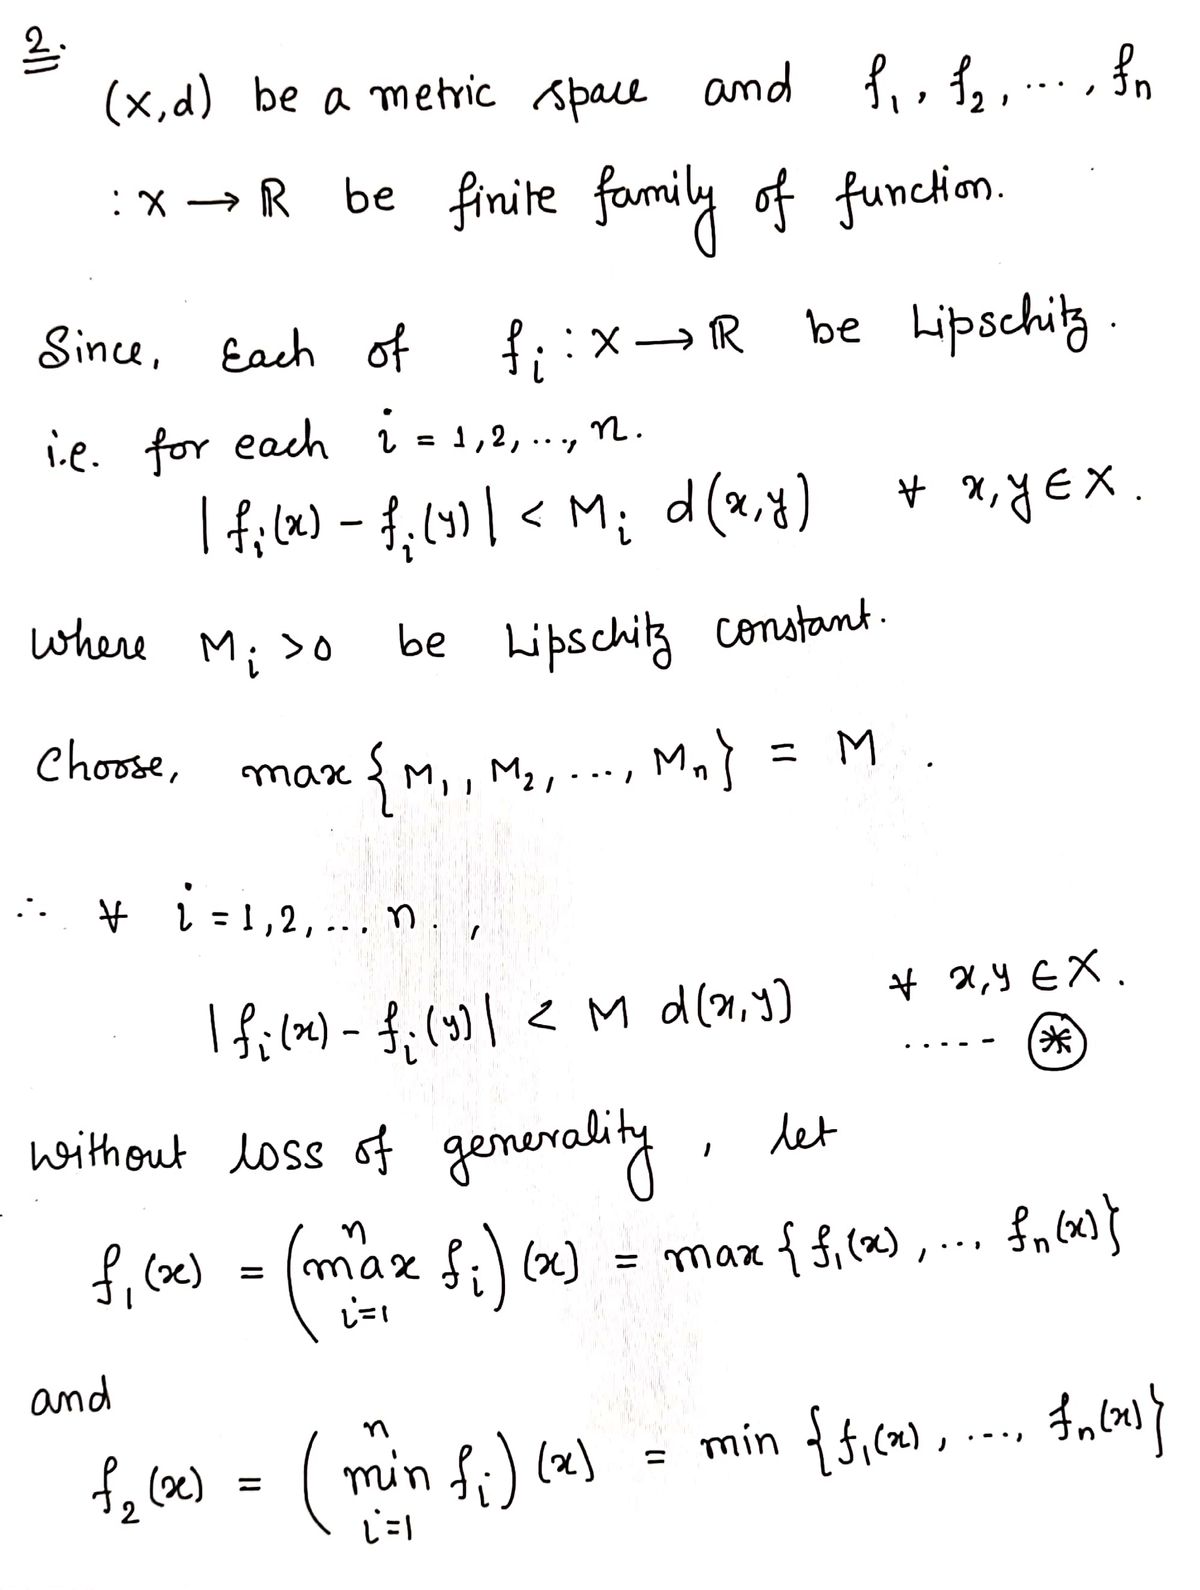 2.
(X,d) be a metric space and f₁, f₂, ..., fn
: X → ℝ be finite family of function.
Since, Each of fᵢ : X → ℝ be Lipschitz.
i.e. for each i = 1,2, ..., n.
| fᵢ(x) - fᵢ(y) | < Mᵢ d(x,y) ∀ x,y ∈ X.
where Mᵢ > 0 be Lipschitz constant.
Choose, max { M₁, M₂, ..., Mn } = M.
∴ ∀ i = 1,2, ... n.,
| fᵢ(x) - fᵢ(y) | < M d(x,y) ∀ x,y ∈ X.
..... ⊛
without loss of generality, let
f₁(x) = ( max_{i=1}^{n} fᵢ ) (x) = max { f₁(x), ... fn(x) }
and
f₂(x) = ( min_{i=1}^{n} fᵢ ) (x) = min { f₁(x), ..., fn(x) }